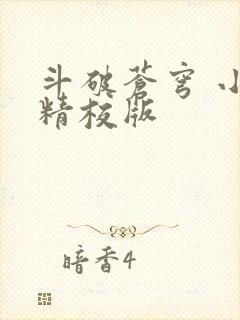 斗破苍穹 小
精校版
暗香4